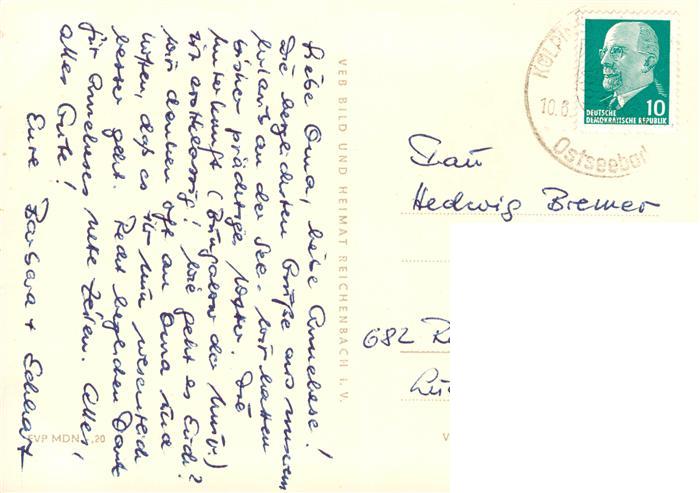 Liebe Oma, liebe Anneliese!
Die herzlichsten Grüße aus unserem
Urlaub an der See. Wir hatten
bisher prächtiges Wetter. Die
Unterkunft (Bungalow der Univ.)
ist erstklassig! Wie geht es Euch?
Wir denken oft an Oma und
hoffen, daß es ihr nun wesentlich
besser geht. Recht herzlichen Dank
für Annelieses nette Zeilen. Alles,
alles Gute!
Eure Barbara + Eckhart
VEB BILD UND HEIMAT REICHENBACH i. V.
EVP MDN ,20
V
KÖLPIN
10.8.
Ostseebad
10
DEUTSCHE
DEMOKRATISCHE REPUBLIK
Frau
Hedwig Bremer
682 R